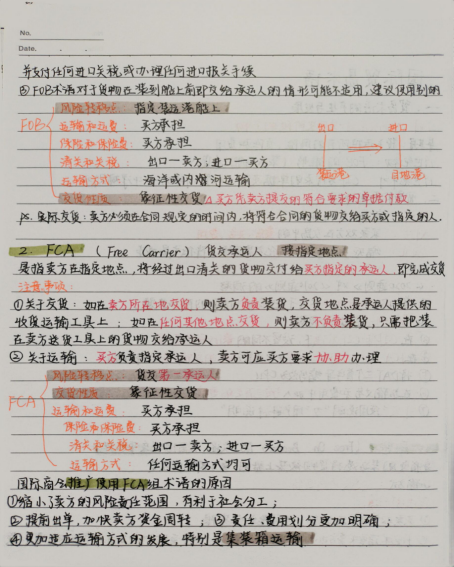 No.
Date.
并支付任何进口关税或办理任何进口报关手续
④FOB术语对于货物在装到船上前即交给承运人的情形可能不适用,建议使用别的
风险转移点:指定装运港船上
FOB 运输和运费:买方承担 出口 进口
保险和保险费:买方承担
清关和关税:出口—卖方;进口—买方 装运港 目的港
运输方式:海洋或内河运输
交货性质:象征性交货
ps. 实际交货:卖方必须在合同规定的时间内,将符合合同的货物交给买方或指定的人.
2. FCA (Free Carrier) 货交承运人 指定地点
是指卖方在指定地点,将经过出口清关的货物交付给买方指定的承运人,即完成交货
注意事项:
①关于交货:如在卖方所在地交货,则卖方负责装货,交货地点是承运人提供的
收货运输工具上;如在任何其他地点交货,则卖方不负责装货,只需把装
在卖方送货工具上的货物交给承运人
②关于运输:买方负责指定承运人,卖方可应买方要求协助办理
风险转移点:货交第一承运人
FCA 交货性质:象征性交货
运输和运费:买方承担
保险和保险费:买方承担
清关和关税:出口—卖方;进口—买方
运输方式:任何运输方式均可
国际商会推广使用FCA组术语的原因
①缩小了卖方的风险责任范围,有利于社会分工;
②提前出单,加快卖方资金周转;③责任、费用划分更加明确;
④更加适应运输方式的发展,特别是集装箱运输